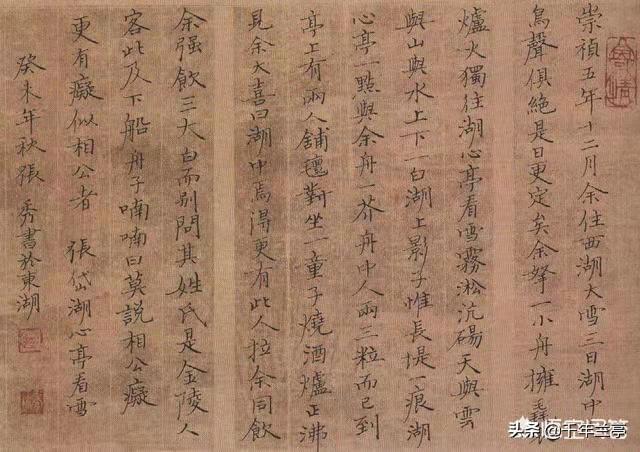 崇禎五年十二月余住西湖大雪三日湖中
鳥聲俱絕是日更定矣余拏一小舟擁毳衣
爐火獨往湖心亭看雪霧淞沆碭天與雲
與山與水上下一白湖上影子惟長堤一痕湖
心亭一點與余舟一芥舟中人兩三粒而已到
亭上有兩人鋪氊對坐一童子燒酒爐正沸
見余大喜曰湖中焉得更有此人拉余同飲
余强飲三大白而別問其姓氏是金陵人
客此及下船舟子喃喃曰莫說相公癡
更有癡似相公者 張岱湖心亭看雪
癸未年秋張秀書於東湖
头条@千年兰亭